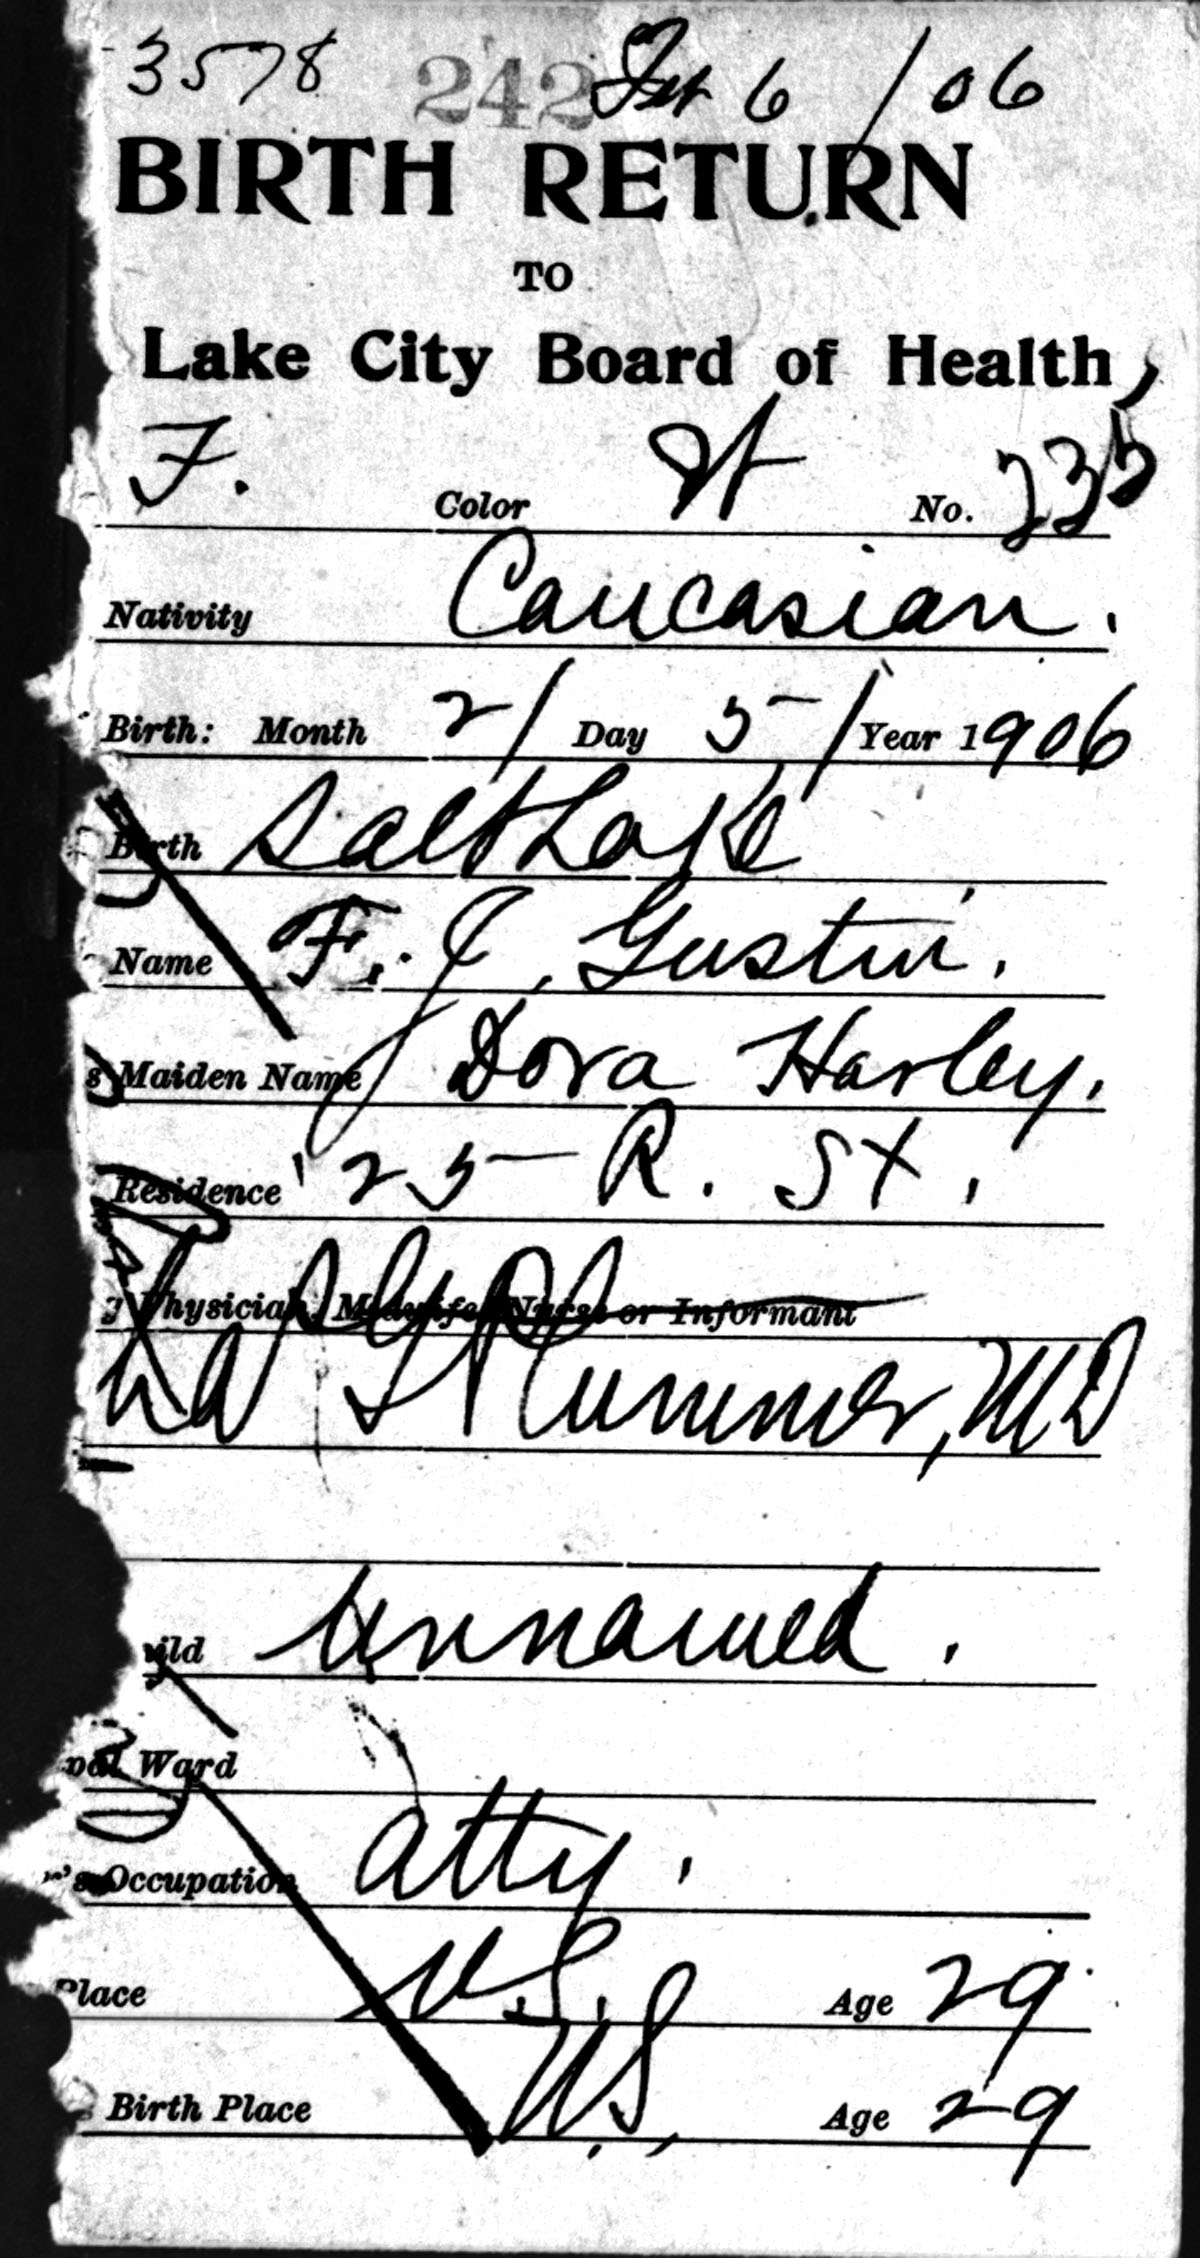 3578 242 Feb 6 / 06
BIRTH RETURN
TO
Lake City Board of Health,
F. Color W No. 235
Nativity Caucasian.
Birth: Month 2 / Day 5 / Year 1906
Birth Salt Lake
Name F. J. Gustin.
s Maiden Name Dora Harley.
Residence 25 R. St.
g Physician, Midwife, Nurse or Informant
Plummer, MD
ild Unnamed.
pal Ward
's Occupation Atty.
Place U.S. Age 29
Birth Place U.S. Age 29